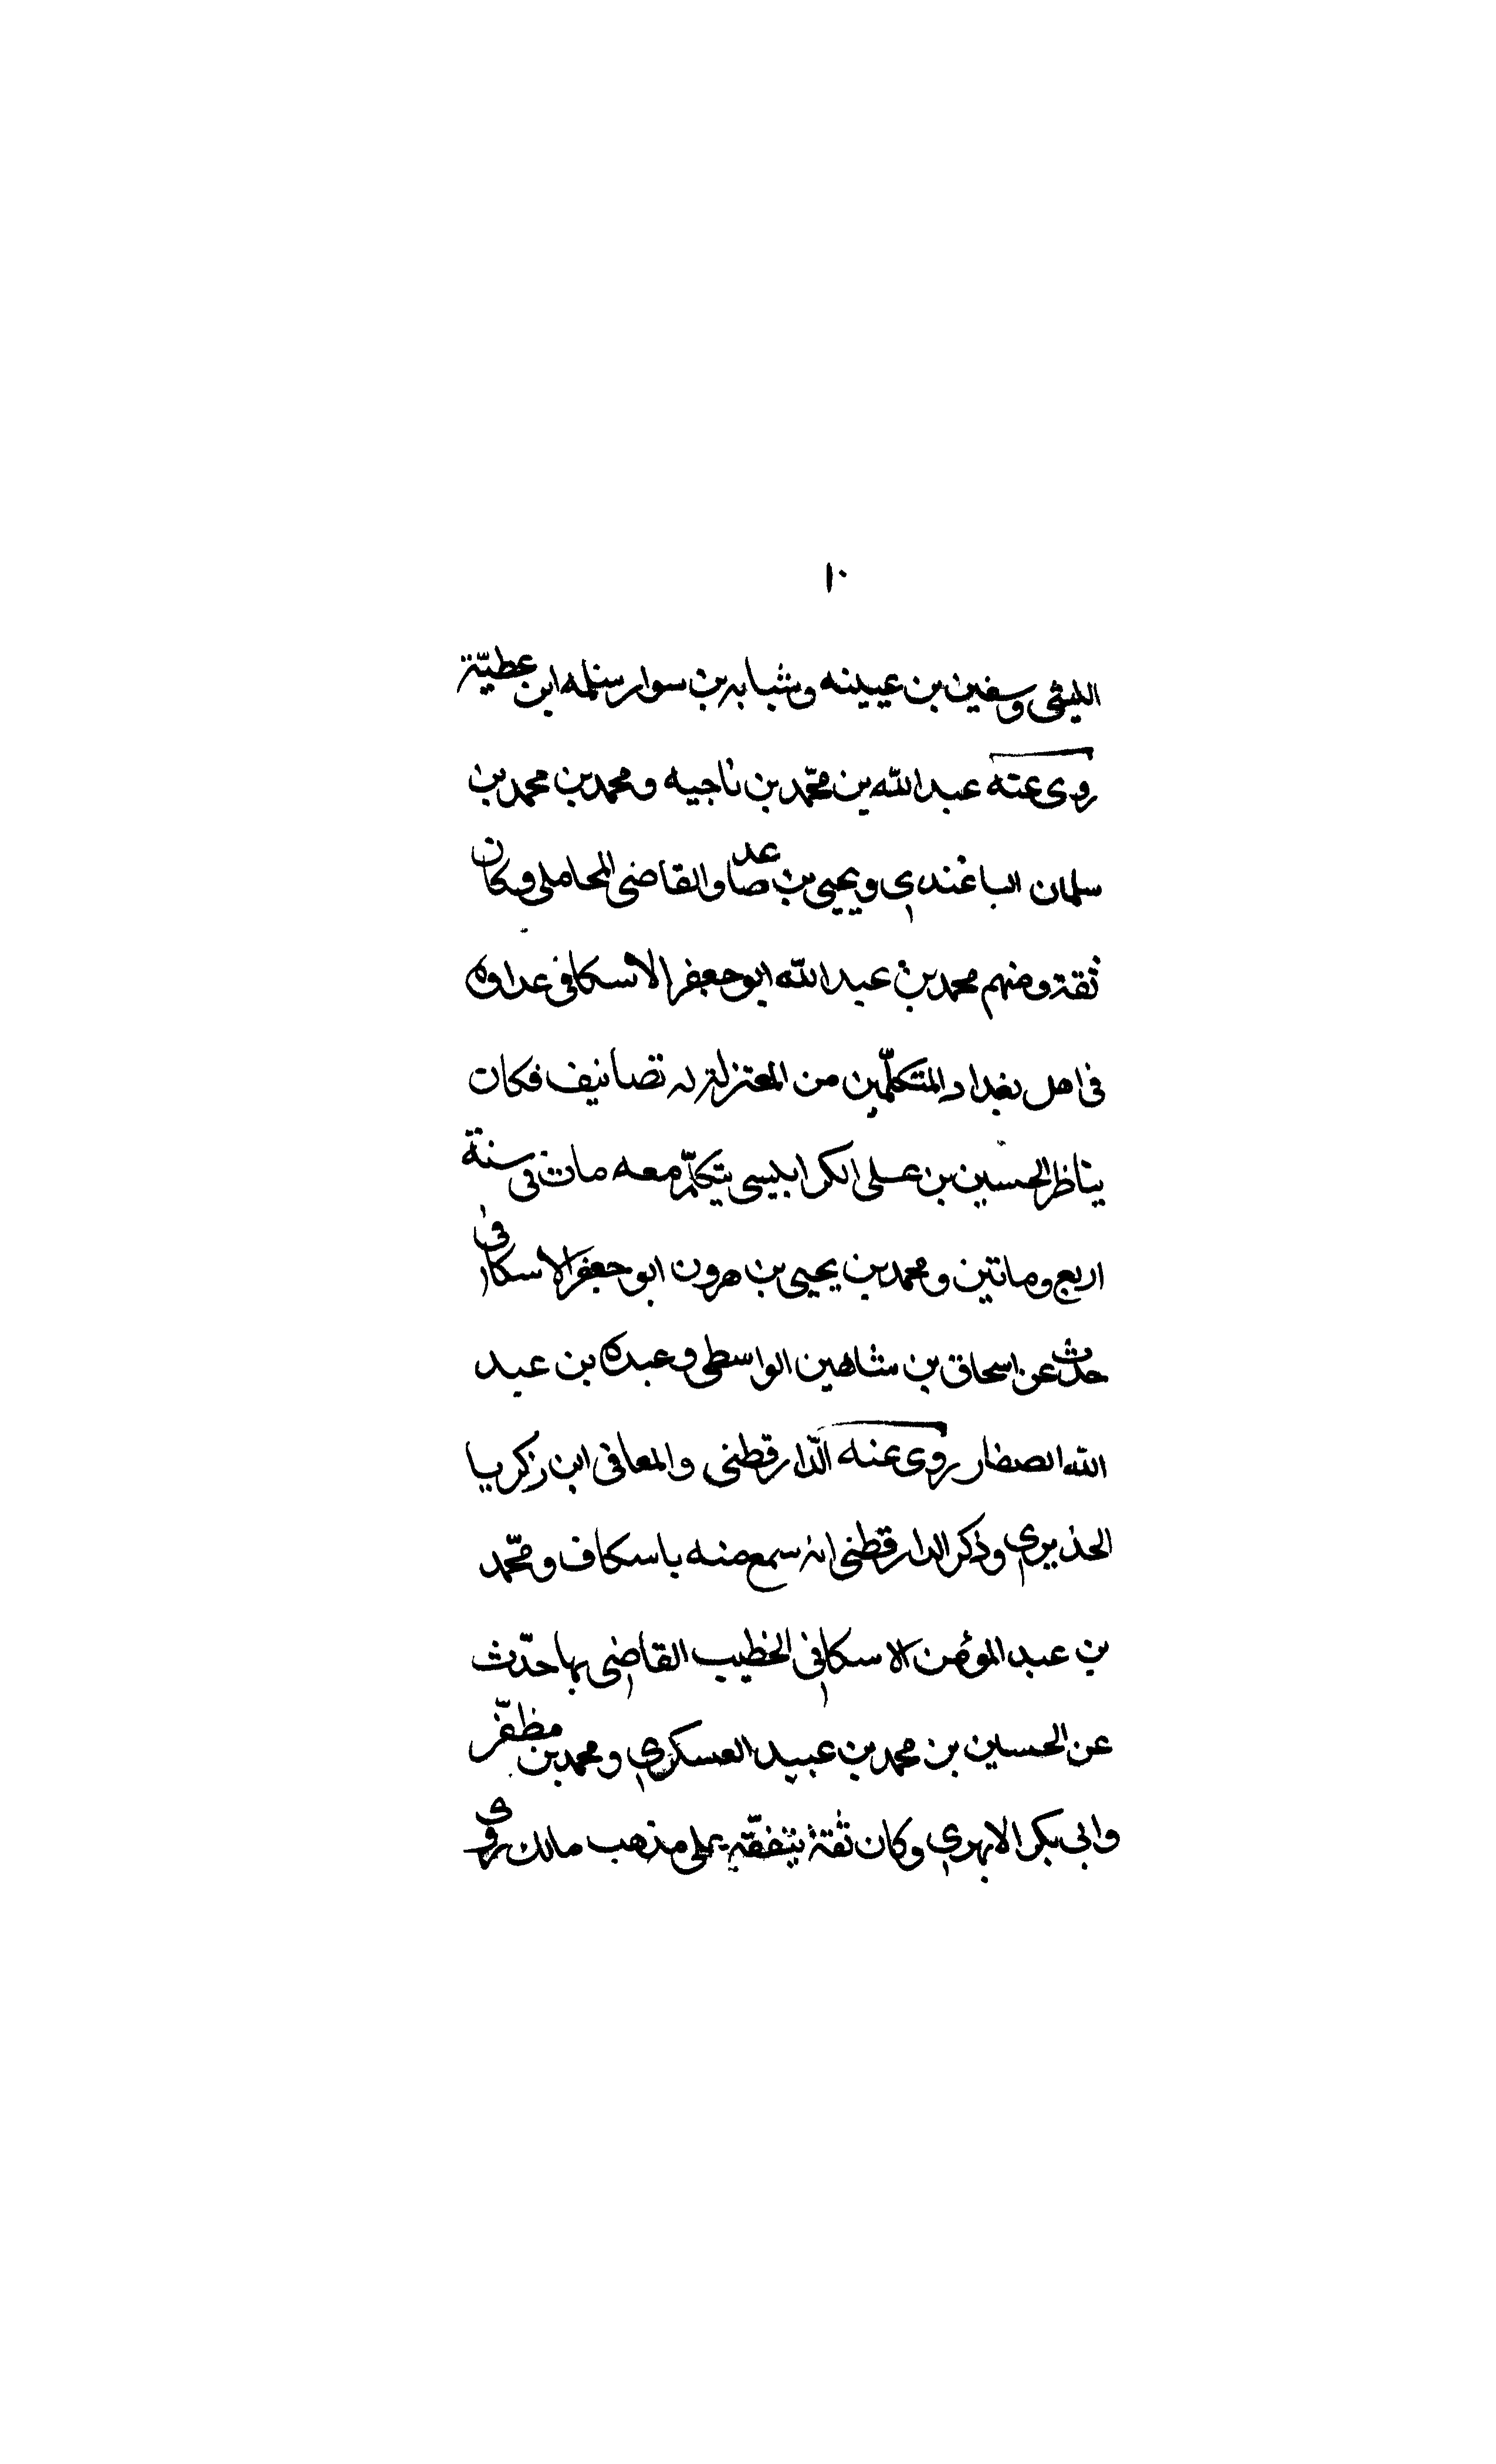 ١٠
الليثى وسفين بن عيينه وشبابه بن سوار سلمه ابن عطيّة
روى عنه عبد الله بن محمّد بن ناجيه ومحمد بن محمد بن
سلمان الباغندي ويحيى بن صاعد والقاضى المحاملى وكان
ثقة ومنهم محمد بن عبد الله ابو جعفر الاسكافى عداده
فى اهل بغداد المتكلّمين من المعتزلة له تصانيف فكان
يناظر الحسين بن على الكرابليسى يتكلّم معه مات فى سنة
اربع وماتين ومحمد بن يحيى بن هرون ابو جعفر الاسكافى
حدث عن اسحاق بن شاهين الواسطى وعبده بن عبد
الله الصفار روى عنه الدّارقطنى والمعافى ابن زكريا
الحذيري وذكر الدارقطنى انه سمع منه باسكاف ومحّمد
بن عبد المؤمن الاسكافى الخطيب القاضى بها حدّث
عن الحسين بن محمد بن عبيد العسكري ومحمد بن مظفّر
وابى بكر الابهري وكان ثقة يتفقّه على مذهب مالك روى